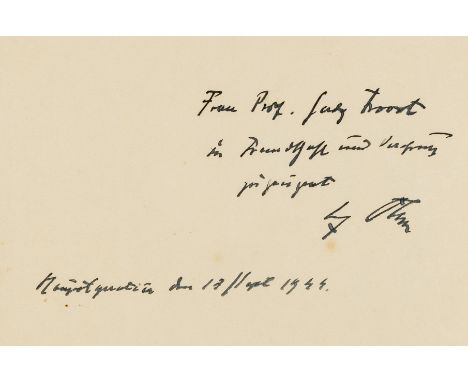 Frau Prof. Gerdy Troost
in Freundschaft und Verehrung
zugeeignet
Hauptquartier den 17 Sept 1944.